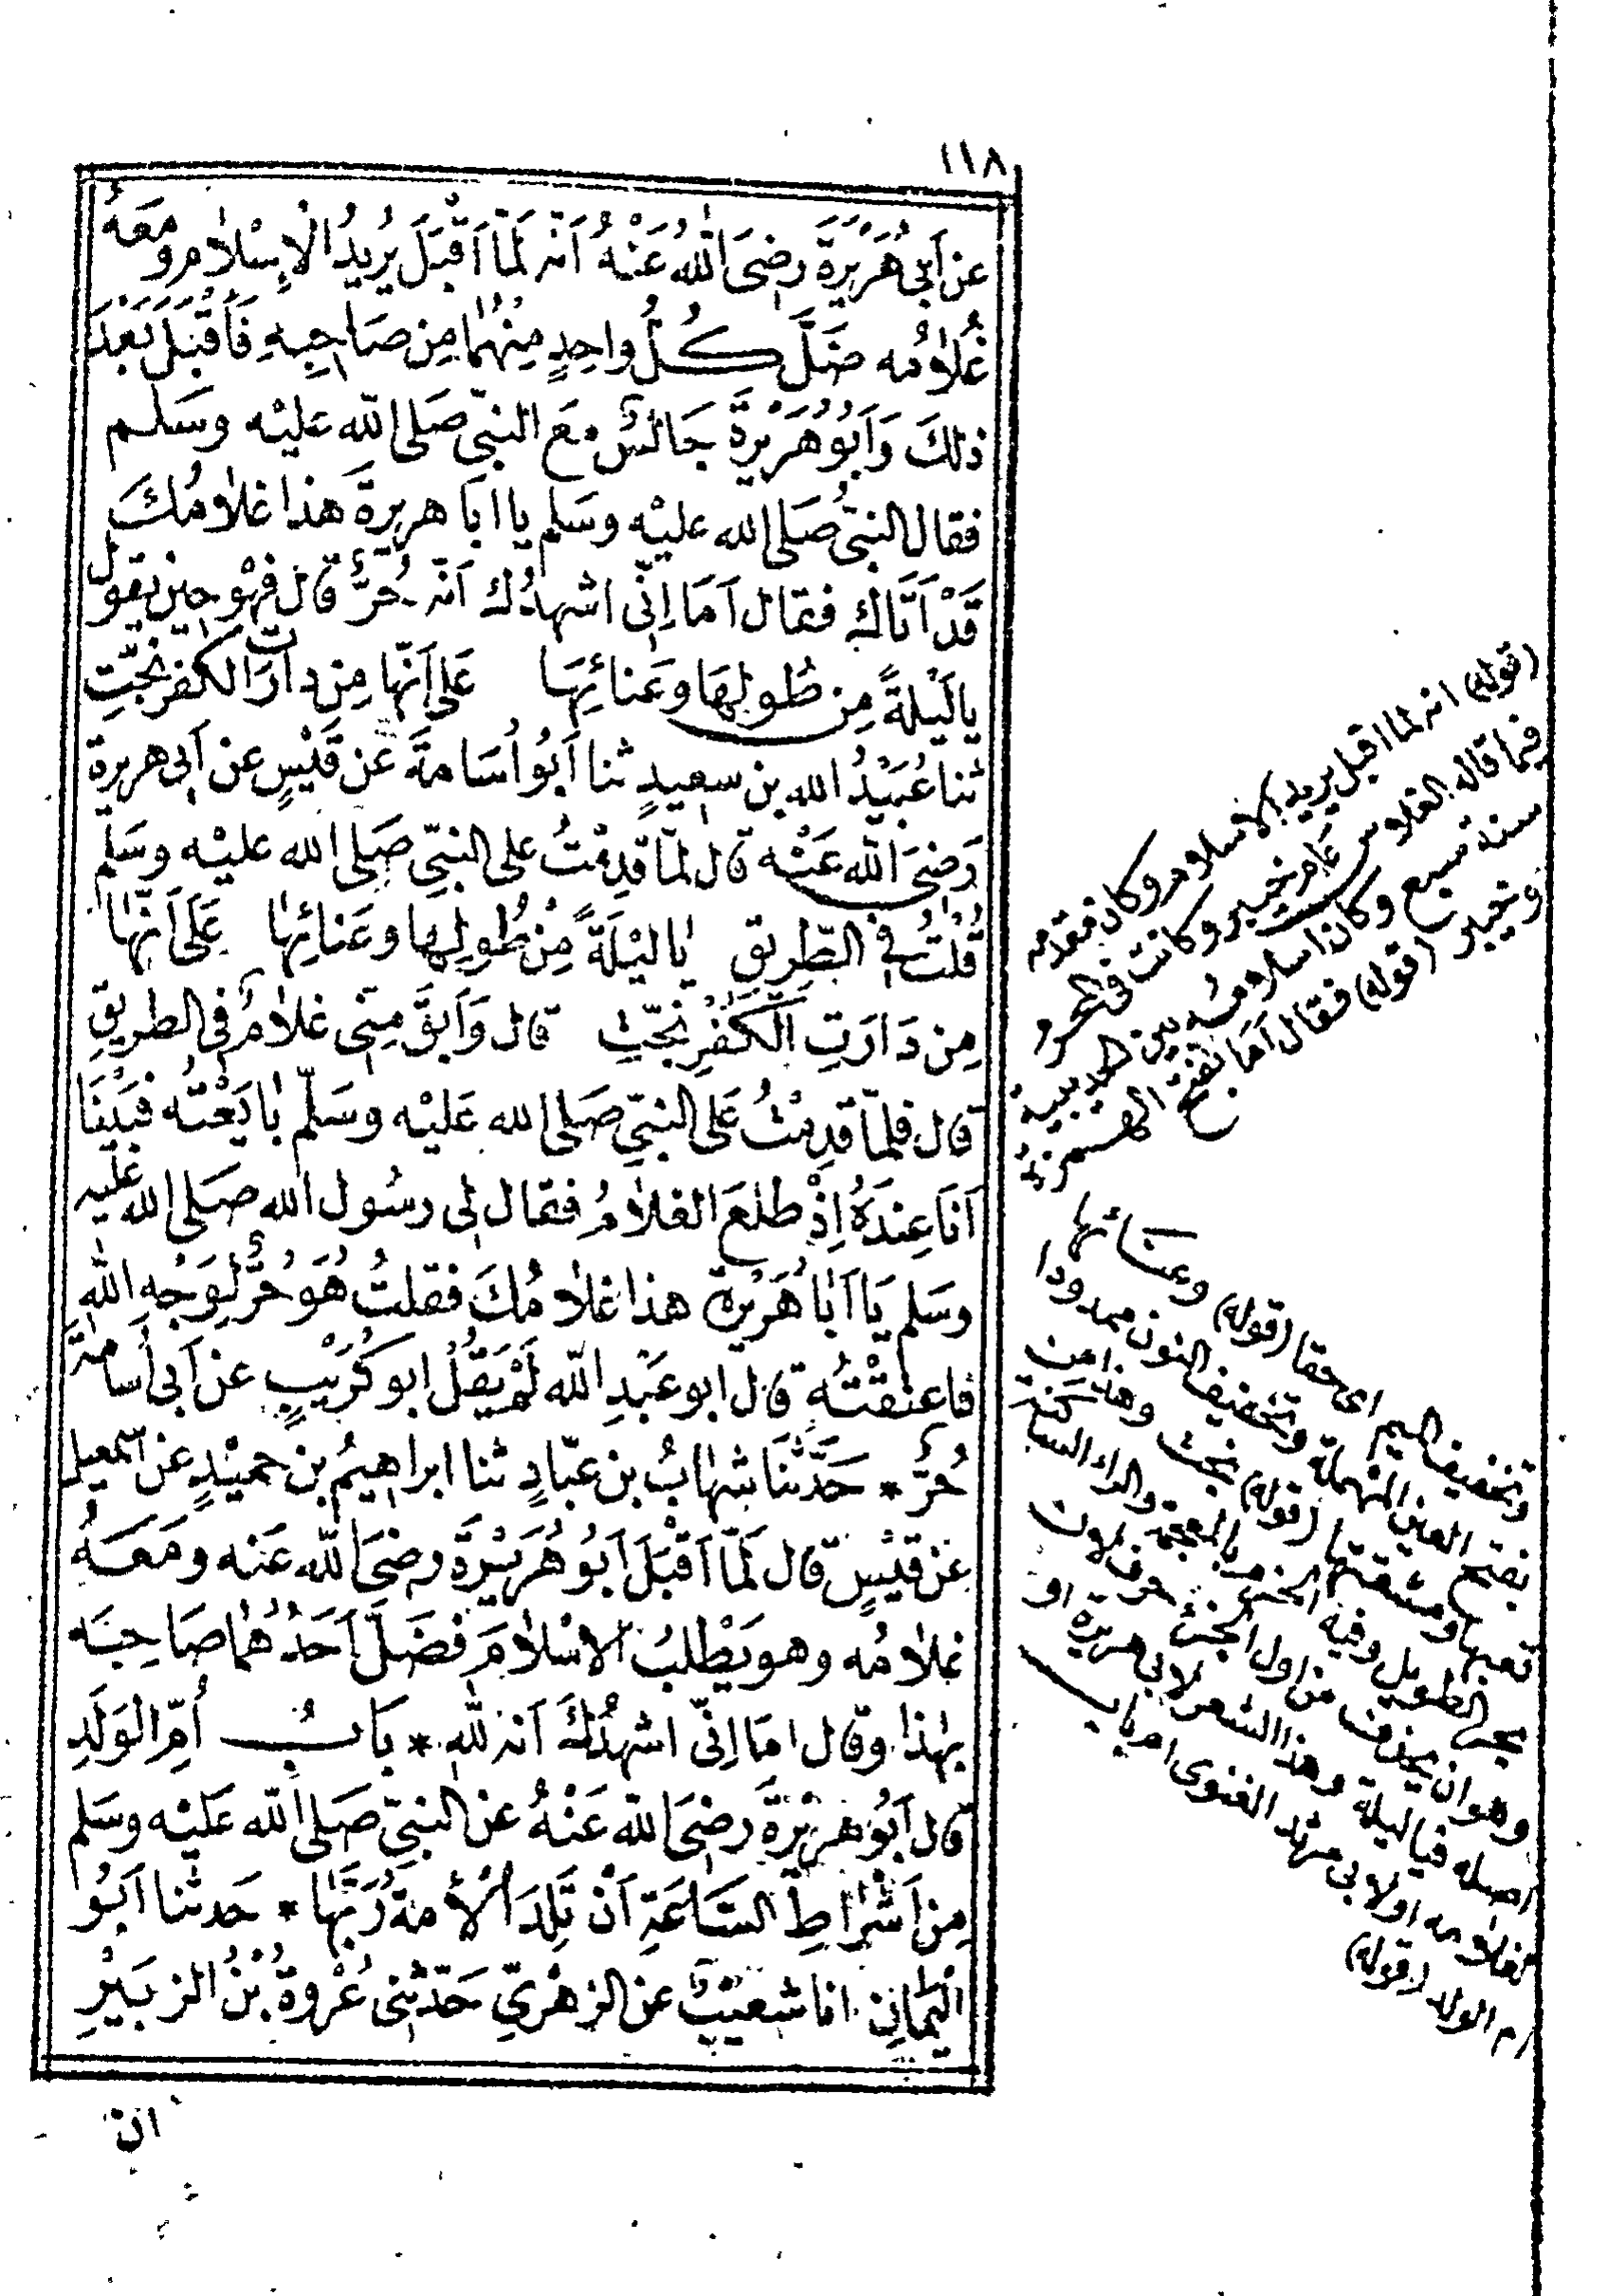 ١١٨
عَنْ اَبِى هُرَيْرَةَ رَضِىَ اللّٰهُ عَنْهُ اَنّه لَمّا اَقْبَلَ يُرِيدُ الْاِسْلَامَ وَمَعَهُ
غُلَامُه ضَلَّ كُلُّ وَاحِدٍ مِنْهُمَا مِن صَاحِبِهِ فَاَقْبَلَ بَعْدَ
ذٰلِكَ وَاَبُو هُرَيْرَةَ جَالِسٌ مَعَ النبىّ صَلى الله عَلَيْه وسَلم
فقال النبىُّ صَلى الله عليْه وسَلم يا اَبَا هريرةَ هذا غلامُكَ
قَدْ اَتَاكَ فقال اَمَا اِنّى اشهِدُك اَنّه حُرٌّ قال فهْو حِين يقول
يا لَيْلَةً مِن طُولِهَا وعَنائِهَا عَلى اَنّهَا مِن دَارَةِ الكُفرِ نَجّتِ
ثنا عُبَيْدُ الله بن سعِيدٍ ثنا اَبُو اُسَامةَ عَن قَيْسٍ عن اَبى هريرةَ
رَضىَ الله عَنْه قال لمّا قدِمْتُ على النبىّ صَلى الله عليْه وسَلّم
قُلْتُ فى الطّرِيق يَا لَيْلَةً مِنْ طُولِها وعَنائِهَا عَلَى اَنّهَا
مِن دَارَتِ الكُفْرِ نجّتِ قال وَاَبَقَ مِنّى غلَامٌ فى الطريقِ
قال فلمّا قدِمْتُ عَلى النبىّ صَلى الله عَليْه وسَلّم بَايَعْتُه فبَيْنَا
اَنَا عِنْدَهُ اِذْ طلَعَ الغلامُ فقال لى رسُول الله صَلى الله عليه
وسَلم يَا اَبَا هُرَيْرة هذا غلامُكَ فقلتُ هُوَ حُرٌّ لِوَجْهِ اللهِ
فاعتقْتُه قال ابو عَبْدِ الله لَمْ يَقُلْ ابو كُرَيْبٍ عن اَبى اُسَامةَ
حُرٌّ * حَدّثَنا شهَابُ بن عبّادٍ ثنا ابراهِيمُ بن حميْدٍ عَن اسمٰعيل
عَن قيْسٍ قال لَمّا اَقْبَلَ اَبُو هُرَيْرَةَ رضىَ الله عَنه ومَعَهُ
غلامُه وهو يَطْلبُ الاسْلامَ فضَلَّ اَحَدُهُما صَاحِبَه
بهٰذا وقال امَا اِنّى اشهِدُكَ اَنه لله * بَابُ اُمِّ الوَلَدِ
قال اَبُو هريْرَةَ رضىَ الله عَنْهُ عن النبىّ صَلى الله عَليْه وسَلم
مِن اَشْرَاطِ السَّاعَةِ اَنْ تَلِدَ الْاَمَةُ رَبَّهَا * حَدثنا اَبُو
الْيَمَانِ انا شعَيْبٌ عن الزهْرِىّ حَدّثنى عُرْوَةُ بْنُ الزبَيْرِ
ان
(قوله) انه لما اقبل يريد الاسلام وكان مقدمه
فيما قاله الفلاس عام خيبر وكانت فى المحرم
سنة سبع وكان اسلامه بين الحديبية
وخيبر (قوله) فقال اما بفتح الهمزة
وتخفيف الميم اى حقا (قوله) وعنائها
بفتح العين المهملة وتخفيف النون ممدودا
تعبها ومشقتها (قوله) نجت وهذا من
بحر الطويل وفيه الخرم بالمعجمة والراء الساكنة
وهو ان يحذف من اول الجزء حرف لان
اصله فيا ليلة وهذا الشعر لابى هريرة او
لغلامه او لابى مرثد الغنوى اه باب
ام الولد (قوله)